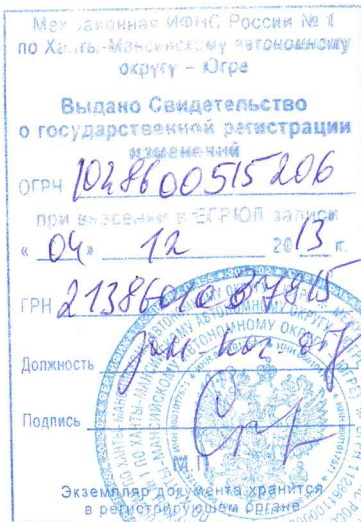 Межрайонная ИФНС России № 1
по Ханты-Мансийскому автономному
округу – Югре
Выдано Свидетельство
о государственной регистрации
изменений
ОГРН 1028600515206
при внесении в ЕГРЮЛ записи
« 04 » 12 2013 г.
ГРН
Должность зам. нач. отд
Подпись
М.П.
Экземпляр документа хранится
в регистрирующем органе